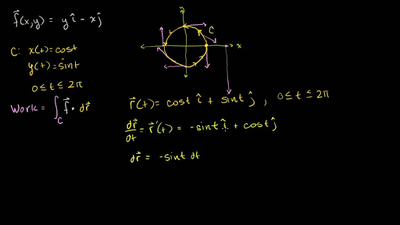 f⃗(x,y) = y î - x ĵ
C: x(t) = cost
y(t) = sint
0 ≤ t ≤ 2π
Work = ∫_C f⃗ · dr⃗
y
C
x
r⃗(t) = cost î + sint ĵ , 0 ≤ t ≤ 2π
dr⃗/dt = r⃗'(t) = -sint î + cost ĵ
dr⃗ = -sint dt